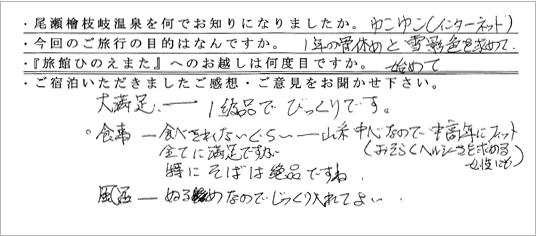 ・尾瀬檜枝岐温泉を何でお知りになりましたか。 ゆこゆこ(インターネット)
・今回のご旅行の目的はなんですか。 1年の骨休めと雪景色を求めて
・『旅館ひのえまた』へのお越しは何度目ですか。 始めて
・ご宿泊いただきましたご感想・ご意見をお聞かせ下さい。
大満足 ― 1級品でびっくりです。
。食事 ― 食べきれないぐらい ― 山菜中心なので中高年にフィット
全てに満足ですね (おそらくヘルシーさを求める
特にそばは絶品ですね 女性にも)
風呂 ― ぬるめなのでじっくり入れてよい.